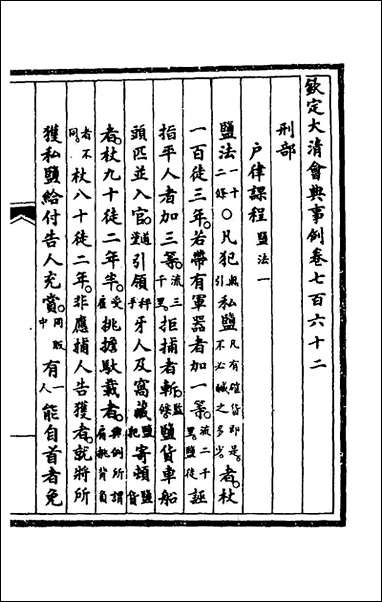 欽定大清會典事例卷七百六十二
刑部
戶律課程鹽法一
鹽法一十二條○凡犯無引私鹽凡有確貨即是不必贓之多少者杖
一百徒三年若帶有軍器者加一等流二千里鹽徒誣
指平人者加三等流三千里拒捕者斬監候鹽貨車船
頭匹並入官道塗引領秤手牙人及窩藏鹽犯寄頓鹽貨
者杖九十徒二年半受雇挑擔馱載者與例所謂肩挑背負
者不同杖八十徒二年非應捕人告獲者就將所
獲私鹽給付告人充賞同販中有一人能自首者免